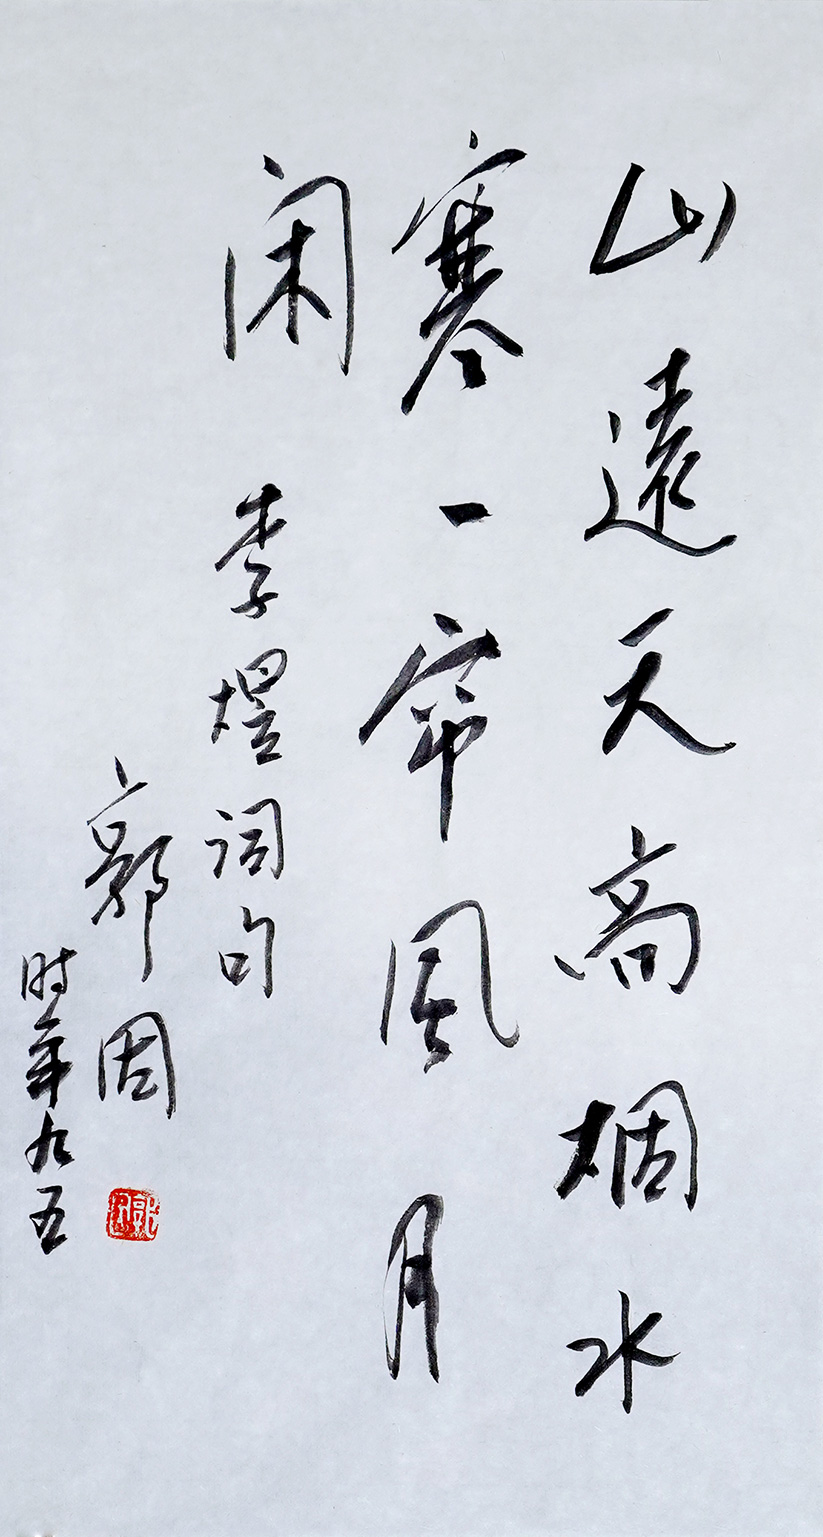 山遠天高烟水
寒一帘風月
闲 李煜词句
郭因
时年九五